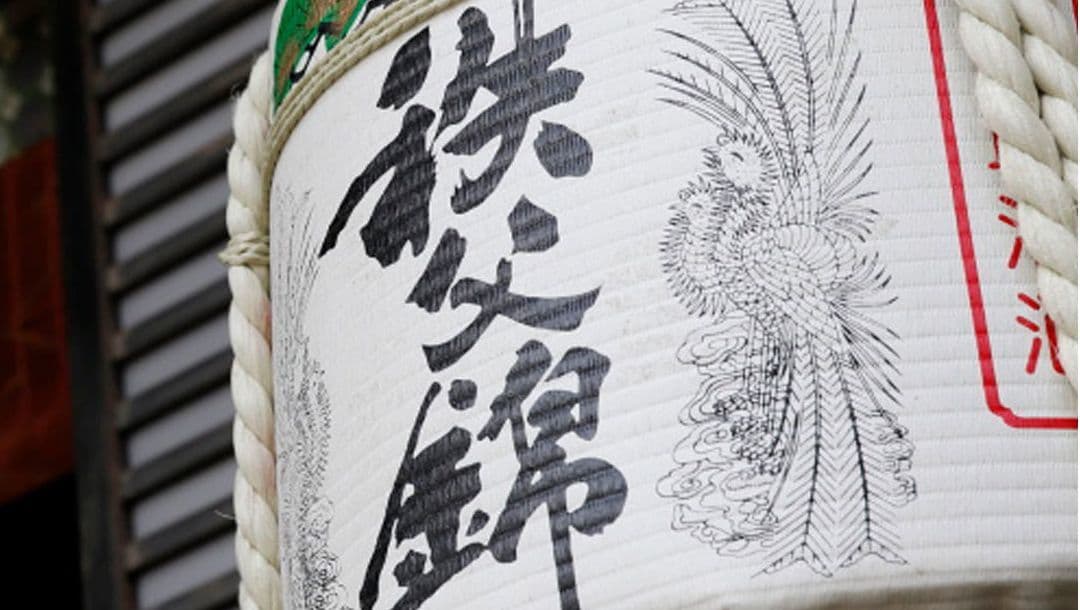 秩父錦